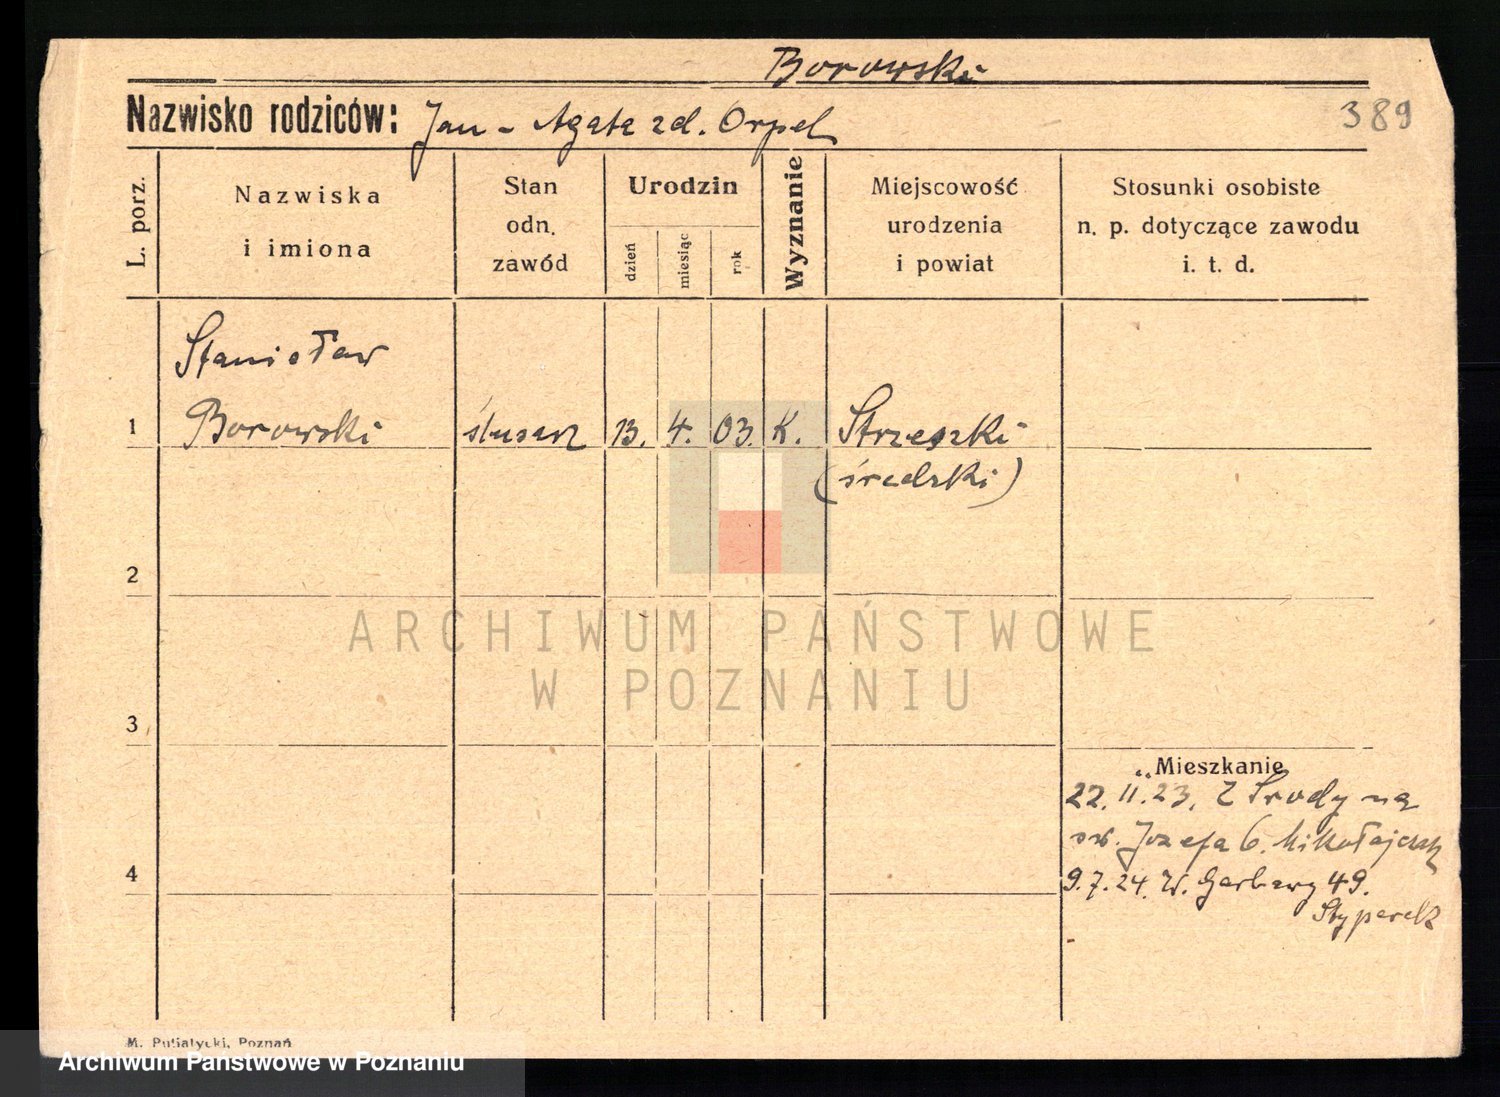 Borowski
Nazwisko rodziców: Jan - Agata zd. Orpel
389
L. porz.
Nazwiska
i imiona
Stan
odn.
zawód
Urodzin
dzień
miesiąc
rok
Wyznanie
Miejscowość
urodzenia
i powiat
Stosunki osobiste
n. p. dotyczące zawodu
i. t. d.
Stanisław
1 Borowski ślusarz 13. 4. 03. K. Strzeszki
(średzki)
2
ARCHIWUM PAŃSTWOWE
W POZNANIU
3
Mieszkanie
22. 11. 23. Z Środy na
św. Józefa 6.
4
9. 7. 24. W. Garbary 49.
M. Putiatycki, Poznań
Archiwum Państwowe w Poznaniu